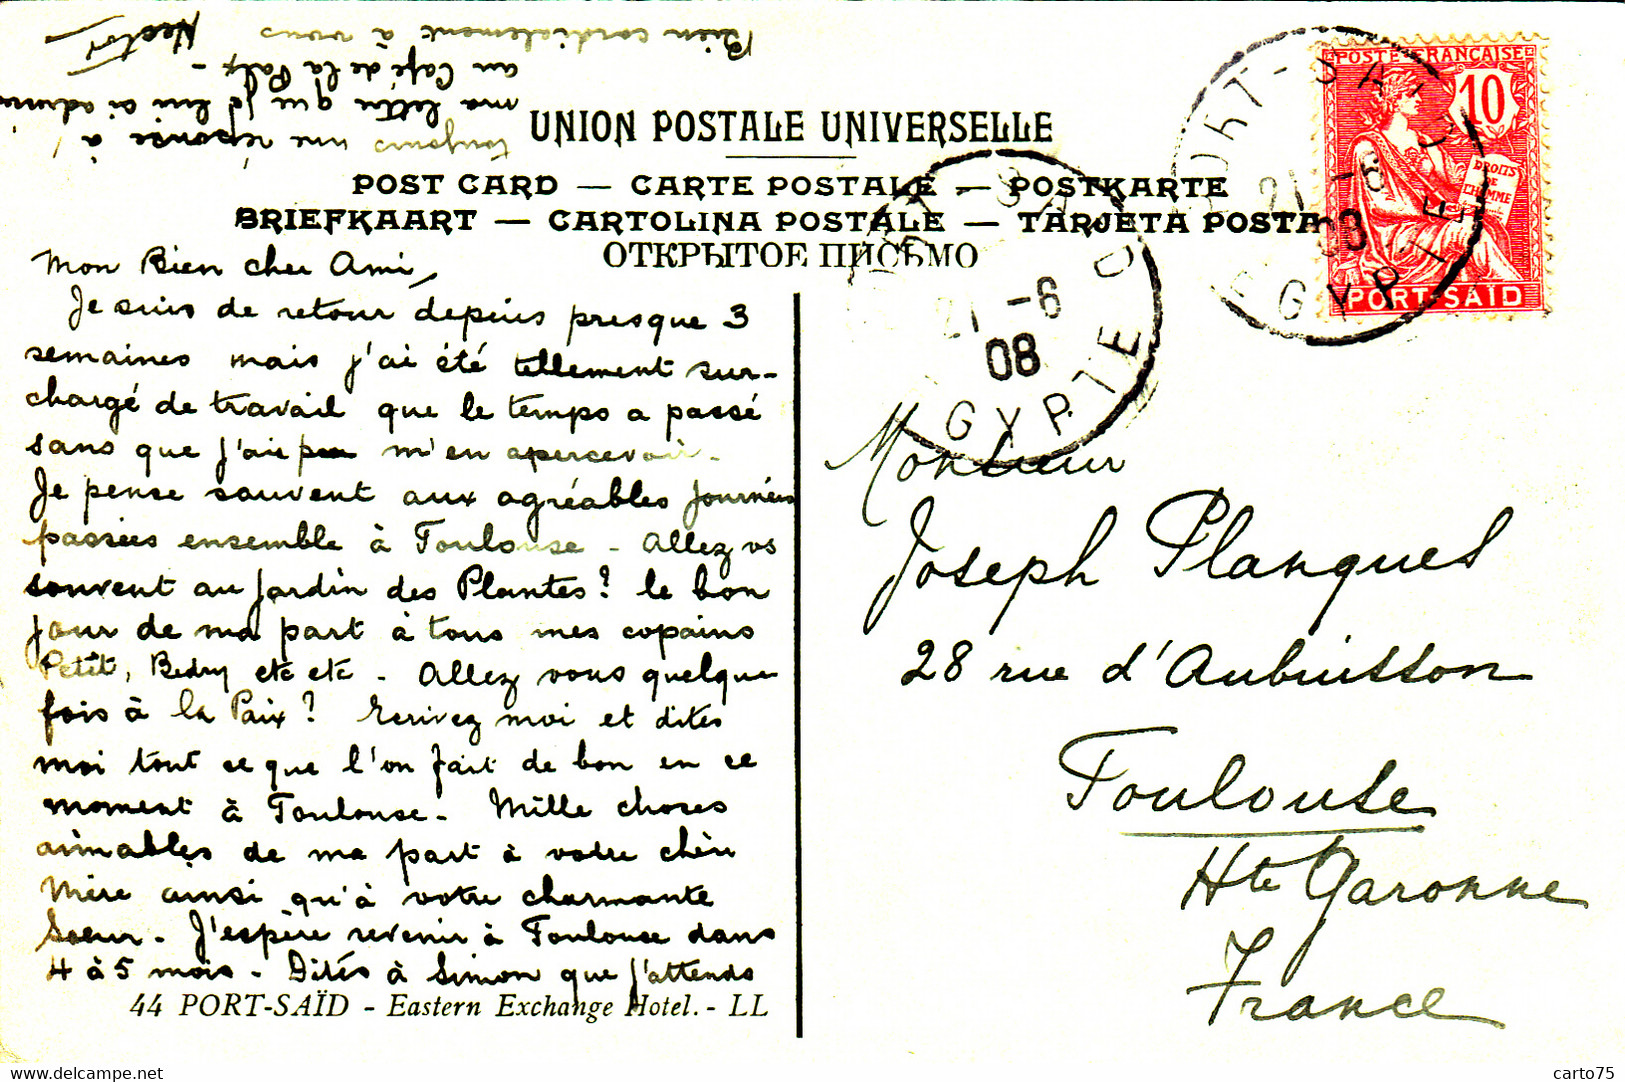 UNION POSTALE UNIVERSELLE
POST CARD — CARTE POSTALE — POSTKARTE
BRIEFKAART — CARTOLINA POSTALE — TARJETA POSTA
ОТКРЫТОЕ ПИСЬМО
Mon Bien cher Ami,
Je suis de retour depuis presque 3
semaines mais j'ai été tellement sur-
chargé de travail que le temps a passé
sans que j'aie pu m'en apercevoir -
Je pense souvent aux agréables journées
passées ensemble à Toulouse - Allez vs
souvent au Jardin des Plantes ? le bon
jour de ma part à tous mes copains
Petit, Bedry etc etc - Allez vous quelque
fois à la Paix ? Ecrivez moi et dites
moi tout ce que l'on fait de bon en ce
moment à Toulouse - Mille choses
aimables de ma part à votre chère
Mère ainsi qu'à votre charmante
Soeur - J'espère revenir à Toulouse dans
4 à 5 mois - Dites à Simon que j'attends
toujours une réponse à
ma lettre que je lui ai adressée
au Café de la Paix -
Bien cordialement à vous
Nestor
44 PORT-SAÏD - Eastern Exchange Hotel. - LL
POSTE FRANÇAISE
10
DROITS DE L'HOMME
PORT-SAÏD
PORT-SAID
21 -6
08
EGYPTE
21 -6
08
EGYPTE
Monsieur
Joseph Planques
28 rue d'Aubuisson
Toulouse
Hte Garonne
France
https://www.delcampe.net
carto75